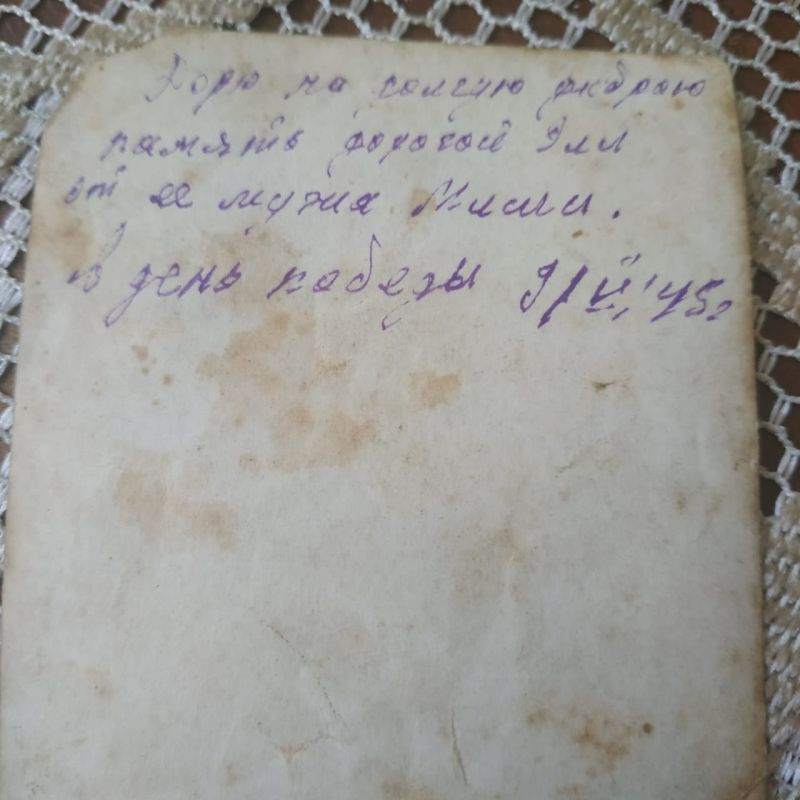 на долгую добрую
память дорогой Элл
от ее мужа Миши.
В день победы 9/V, 45г